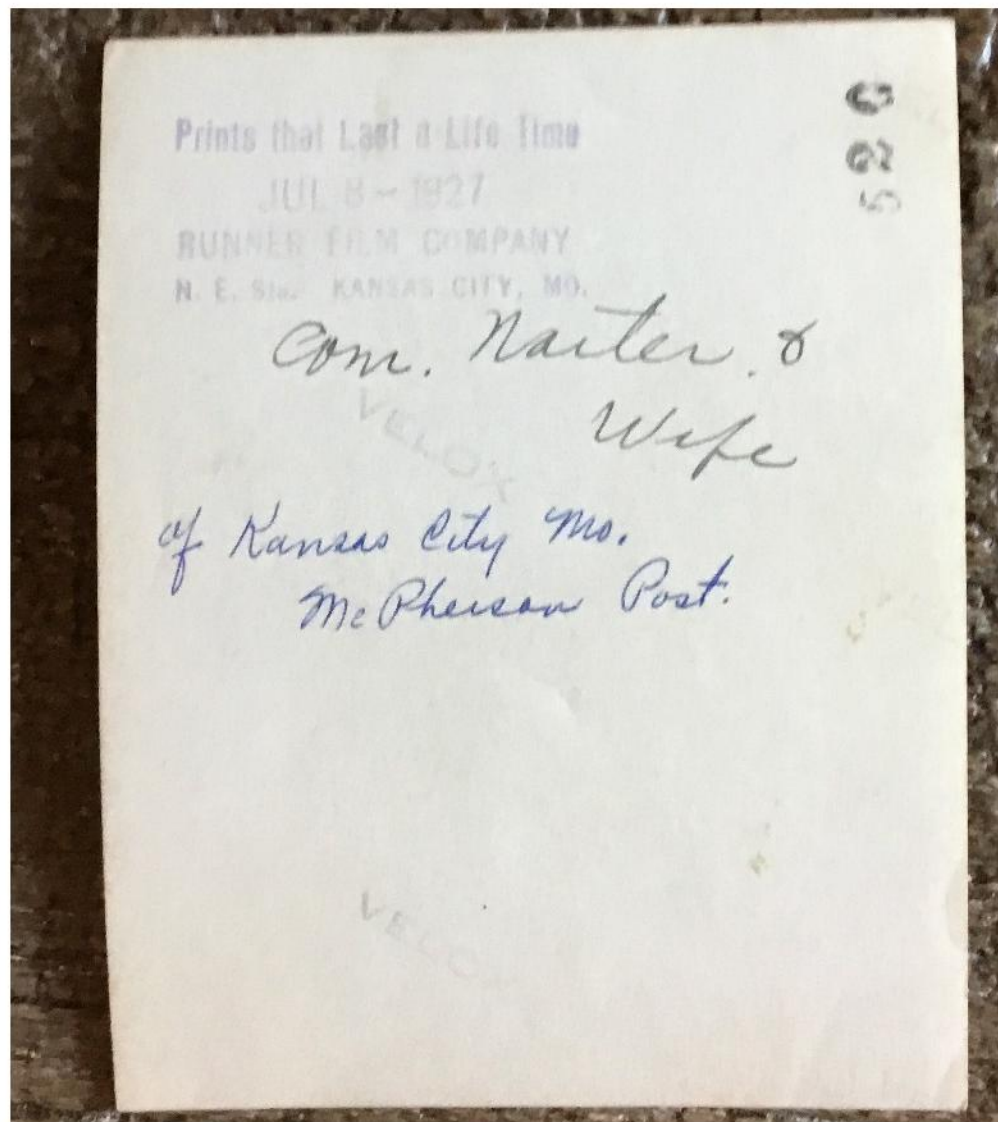 Prints that Last a Life Time
JUL 8 - 1927
RUNNER FILM COMPANY
N. E. Sta. KANSAS CITY, MO.
Com. Naiter. &
Wife
VELOX
of Kansas City Mo.
McPherson Post.
VELOX